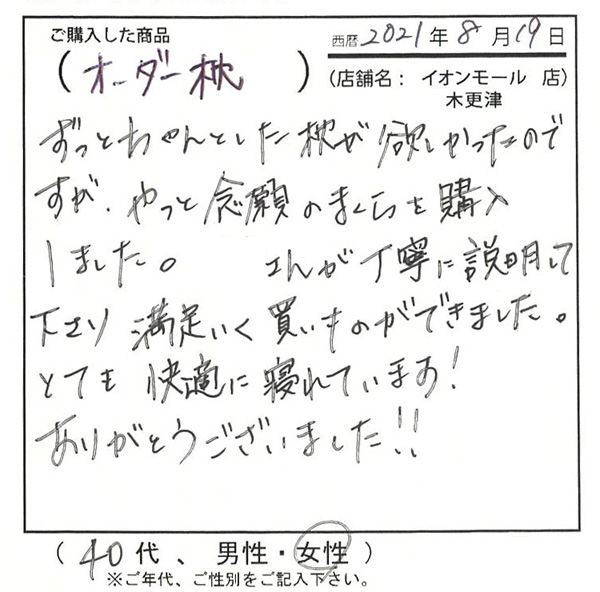 ご購入した商品
西暦 2021年 8月 19日
(オーダー枕)
(店舗名: イオンモール 店)
木更津
ずっとちゃんとした枕が欲しかったので
すが、やっと念願のまくらを購入
しました。 さんが丁寧に説明して
下さり満足いく買いものができました。
とても快適に寝れています!
ありがとうございました!!
(40代、男性・女性)
※ご年代、ご性別をご記入下さい。